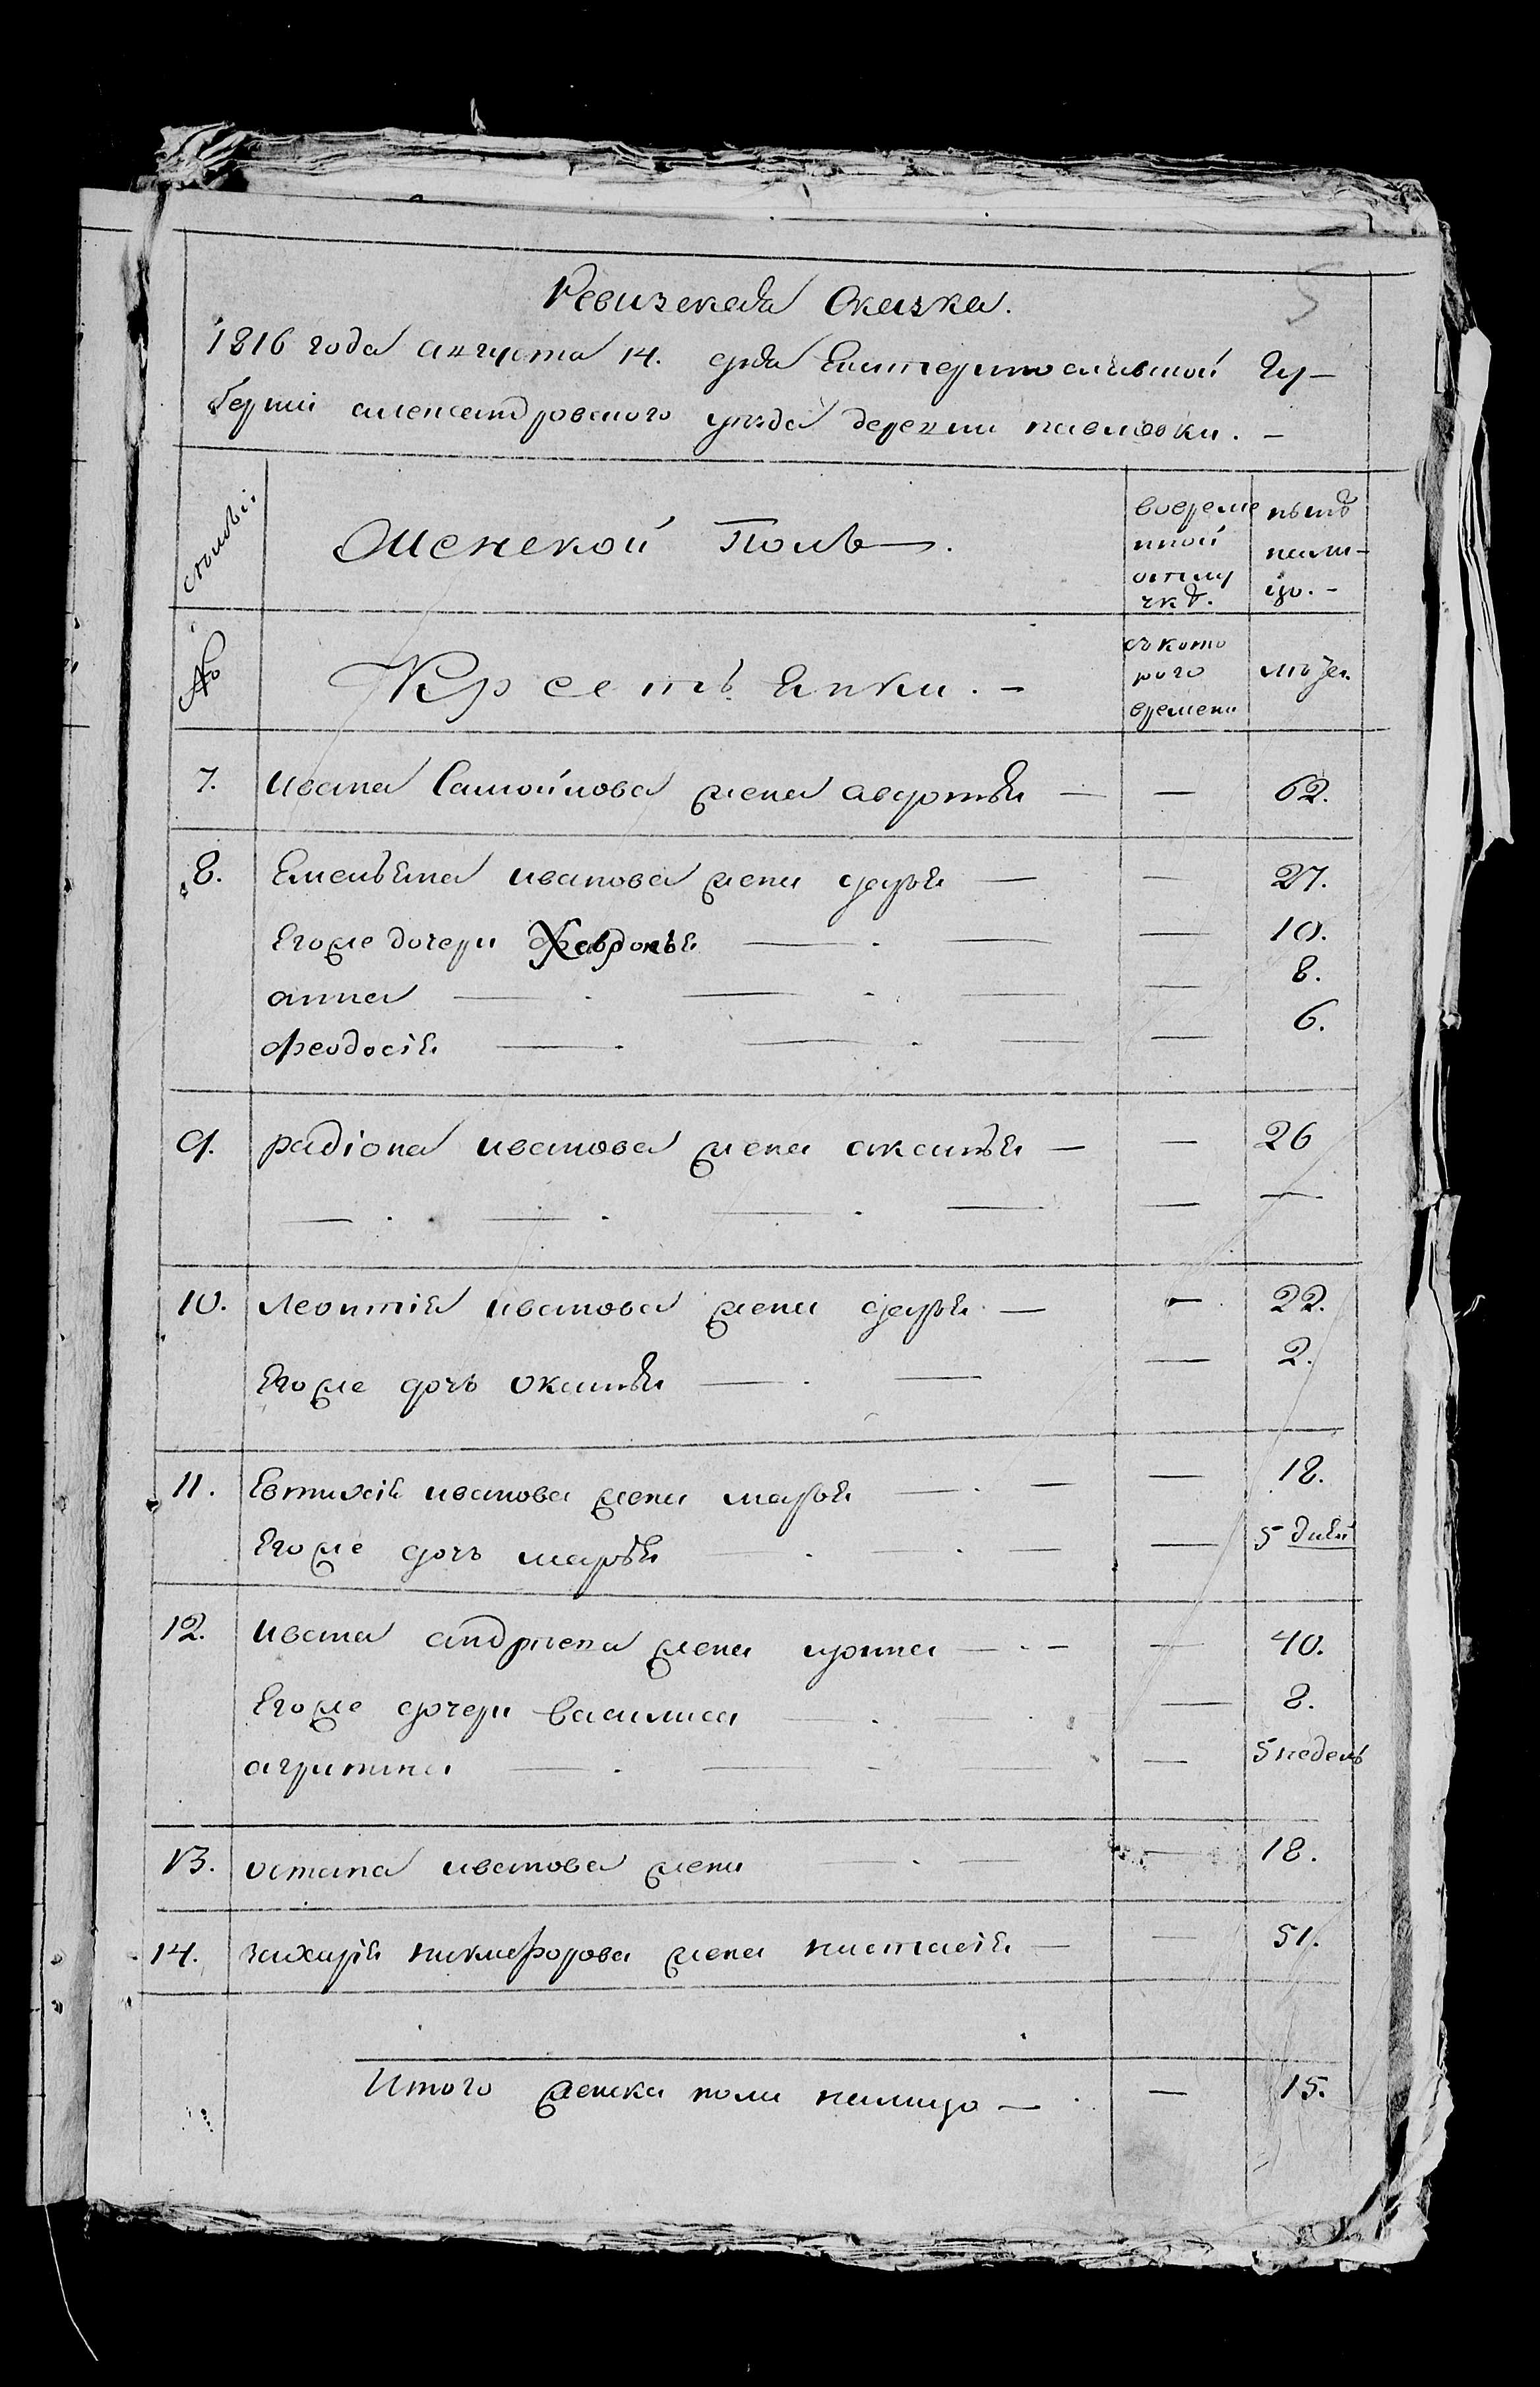 5
Ревизская Сказка.
1816 года августа 14. дня Екатеринославской Гу-
бернии александровского уезда деревни павловки. -
Женской Полъ.
вовреме
нной
отлу
чкѣ.
нынѣ
нали-
цо. -
№
Крестьянки. -
съкото
рого
времени
лѣта.
7. ивана Самойлова жена авдотья — — 62.
8. Емельяна иванова жена дарья — — 27.
Егоже дочери Хавронья — — 10.
анна — — 8.
феодосія — — 6.
9. радіона иванова жена аксинья — — 26
10. леонтія иванова жена дарья — — 22.
Егоже дочь оксинья — — 2.
11. Евтихія иванова жена марья — — 18.
Егоже дочь марья — — 5 дней
12. ивана андреева жена ирина — — 40.
Егоже дочери василиса — — 8.
агрипина — — 5 недель
13. остапа иванова жена — — 18.
14. захарія никифорова жена настасія — — 51.
Итого женска пола налицо — — 15.